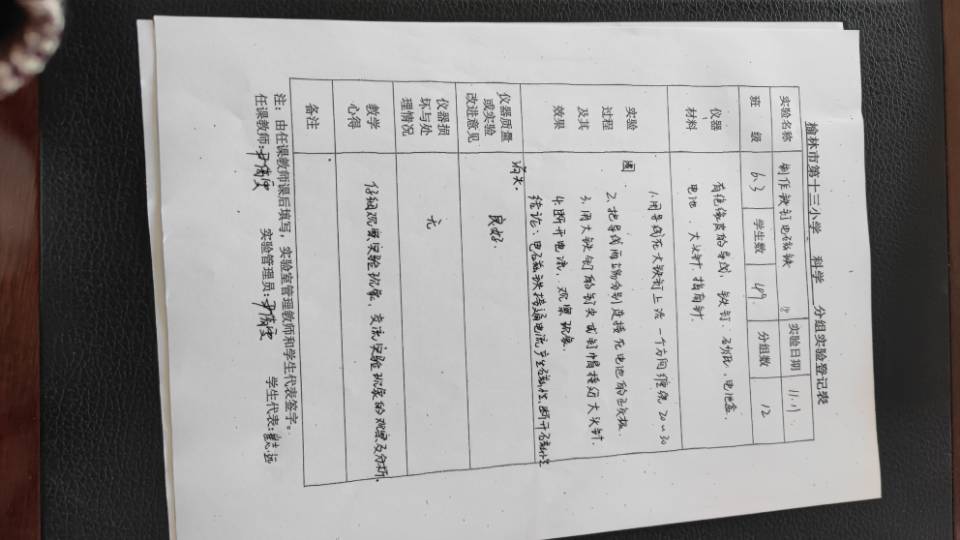 榆林市第十三小学 科学 分组实验登记表
实验名称 制作铁钉电磁铁 实验日期 11.17
班 级 6.3 学生数 49 分组数 12
仪器材料 有绝缘皮的导线、铁钉、砂纸、电池盒
电池、大头针、指南针.
实验过程及其效果 1.用导线在大铁钉上沿一个方向缠绕20~30
圈.
2.把导线两端分别连接在电池的正负极.
3.用大铁钉的钉尖或钉帽接近大头针.
4.断开电流,观察现象.
结论:电磁铁接通电流产生磁性,断开磁性
消失.
仪器质量或实验改进意见 良好.
仪器损坏与处理情况 无
教学心得 仔细观察实验现象,交流实验现象的观察及分析.
备注
注:由任课教师课后填写,实验室管理教师和学生代表签字。
任课教师: 实验管理员: 学生代表: